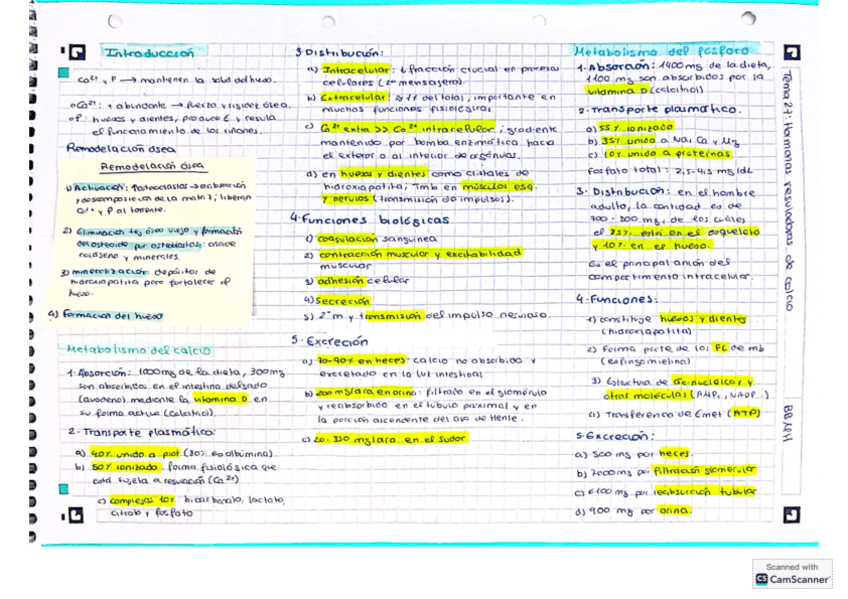 Introducción
Ca²⁺ y P → mantienen la salud del hueso.
○ Ca²⁺: + abundante → fuerza y rigidez ósea.
○ P: huesos y dientes, produce E y regula
el funcionamiento de los riñones.
Remodelación ósea
Remodelación ósea
1) Activación: osteoclastos → reabsorción
y descomposición de la matriz; liberan
Ca²⁺ y P al torrente.
2) Eliminación tej óseo viejo y formación
del osteoide por osteoblastos:
colágeno y minerales.
3) mineralización: depósitos de
hidroxiapatita para fortalecer el
hueso.
4) Formación del hueso
Metabolismo del calcio
1. Absorción: 1000mg de la dieta, 300mg
son absorbidos en el intestino delgado
(duodeno) mediante la vitamina D en
su forma activa (calcitriol).
2. Transporte plasmático:
a) 40% unido a prot (80% es albúmina)
b) 50% ionizado: forma fisiológica que
está sujeta a regulación (Ca²⁺)
c) complejos 10%: bicarbonato, lactato,
citrato y fosfato
3. Distribución:
a) Intracelular: ↓ fracción crucial en procesos
celulares (2º mensajero)
b) Extracelular: 1% del total, importante en
muchas funciones fisiológicas
c) Ca²⁺ extra >> Ca²⁺ intracelular: gradiente
mantenido por bomba enzimática hacia
el exterior o al interior de orgánulos.
d) en huesos y dientes como cristales de
hidroxiapatita; Tmb en músculos esq
y nervios (transmisión de impulsos).
4. Funciones biológicas
1) coagulación sanguínea
2) contracción muscular y excitabilidad
muscular
3) adhesión celular
4) secreción
5) 2º m y transmisión del impulso nervioso.
5. Excreción
a) 70-90% en heces: calcio no absorbido y
excretado en la luz intestinal
b) 200 mg/día en orina: filtrado en el glomérulo
y reabsorbido en el túbulo proximal y en
la porción ascendente del asa de Henle.
c) 20-350 mg/día en el sudor
Metabolismo del fósforo
1. Absorción: 1400mg de la dieta,
1100 mg son absorbidos por la
vitamina D (calcitriol)
2. Transporte plasmático.
a) 55% ionizado
b) 35% unido a Na, Ca y Mg
c) 10% unido a proteínas
Fosfato total: 2,5-4,5 mg/dL
3. Distribución: en el hombre
adulto, la cantidad es de
700-800 mg, de los cuales
el están en el esqueleto
y 10% en es hueso.
Es el principal anión del
compartimento intracelular.
4. Funciones:
1) constituye huesos y dientes
(hidroxiapatita)
2) Forma parte de los FL de mb
(esfingomielina)
3) Estructura de ác. nucleicos y
otras moléculas (AMPc, NADP..)
4) Transferencia de Emet (ATP)
5. Excreción:
a) 500 mg por heces.
b) 7000mg por filtración glomerular
c) 6100 mg por reabsorción tubular
d) 900 mg por orina.
Tema 27: Hormonas reguladoras de calcio
Scanned with
CS CamScanner